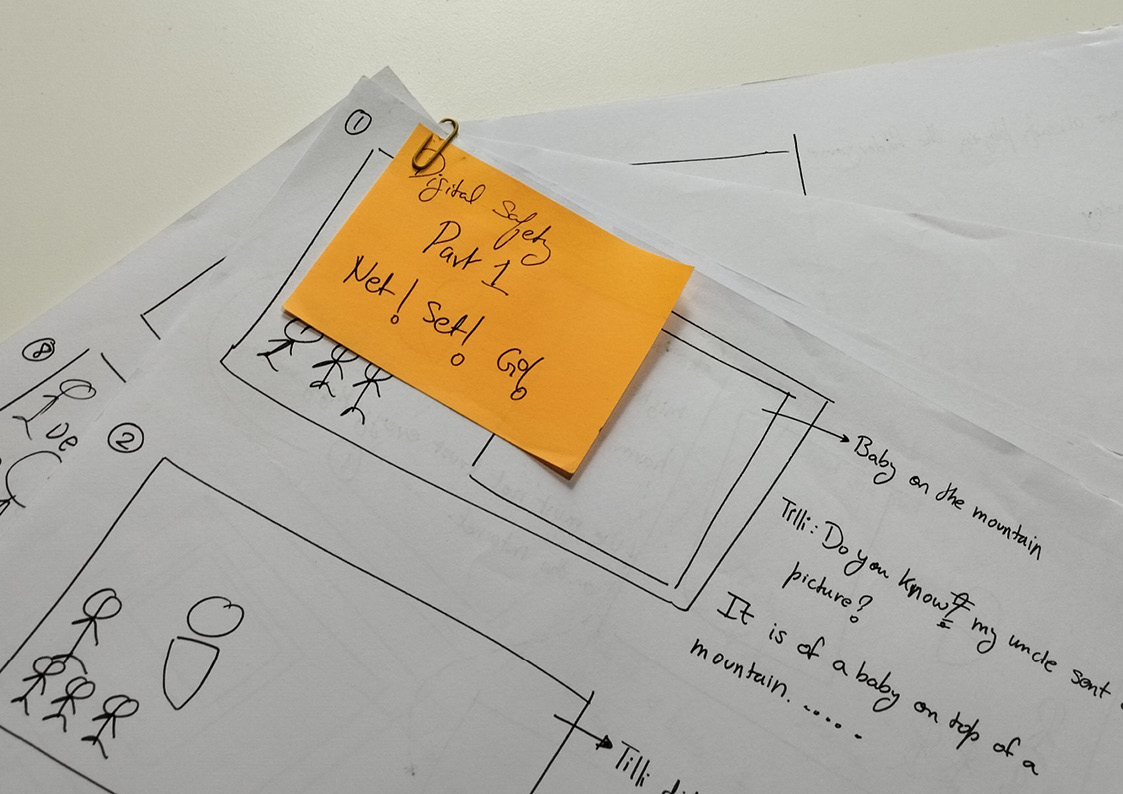 ①
Digital Safety
Part 1
Net! Set! Go!
Baby on the mountain
Tilli: Do you know? my uncle sent
picture?
It is of a baby on top of a
mountain......
⑧
De
②
Tilli